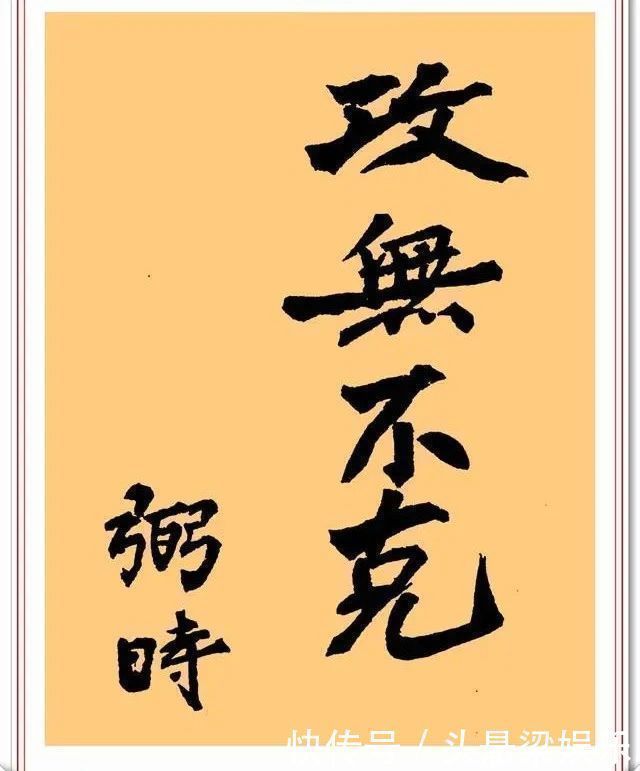 攻無不克
弼時
快传号/头悬梁娱乐